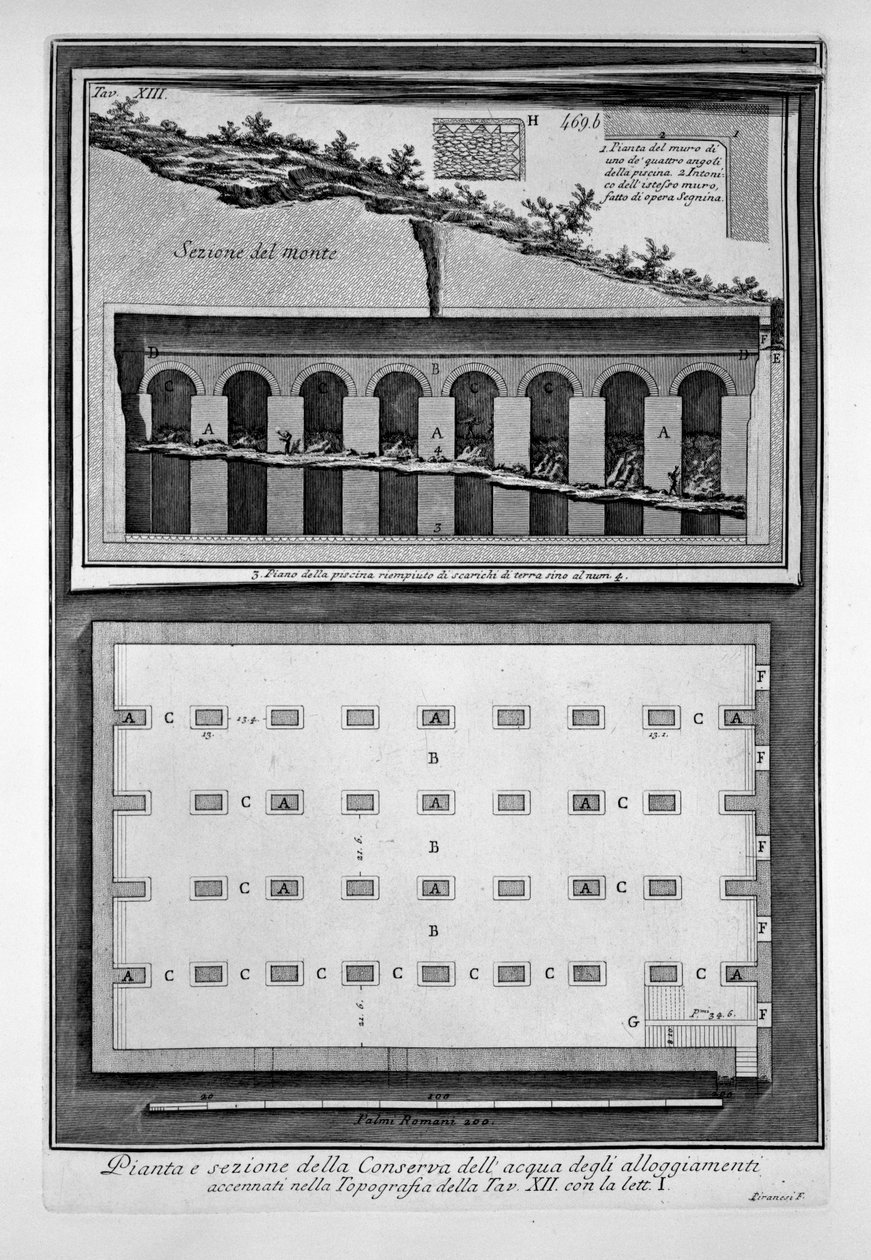 Tav. XIII.
H
469.b
2 1
1. Pianta del muro di
uno de' quattro angoli
della piscina. 2 Intoni-
co dell'istesso muro,
fatto di opera Segnina.
Sezione del monte
F
E
D B D
C C C C
A A A
4
3
3. Piano della piscina riempiuto di scarichi di terra sino al num. 4.
F
A C A C A
13. 13.4. 13.1.
B F
C A A A C
21. 6. B F
C A A A C
B F
A C C C C C C C A
21. 6. G P.mi 34. 6. F
8.10.
20 100 200
Palmi Romani 200.
Pianta e sezione della Conserva dell' acqua degli alloggiamenti
accennati nella Topografia della Tav. XII. con la lett. I.
Piranesi F.